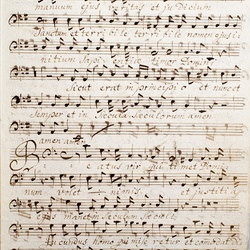 manuum ejus veritas et judicium
Sanctum et terribile terribile nomen ejus i-
nitium Sapi-entiæ timor Domini
Sicut erat in principio et nunc et
Semper et in Sæcula Sæculorum amen
amen amen
Be-atus vir qui timet Domi-
num volet nimis et justitia
manet in Sæculum Sæculi
Jucundus homo qui mise retur et comodat